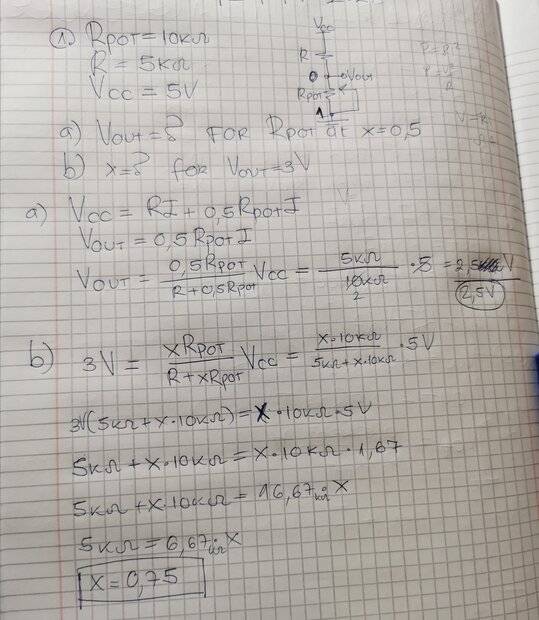 ① RPOT = 10kΩ
R = 5kΩ
VCC = 5V
VCC
R
0 VOUT
RPOT
1
a) VOUT = ? FOR RPOT at x = 0,5
b) x = ? for VOUT = 3V
a) VCC = RI + 0,5RPOTI
VOUT = 0,5RPOTI
VOUT = 0,5RPOT / R + 0,5RPOT VCC = 5kΩ / 10kΩ 2 · 5 = 2,5 V
2,5V
b) 3V = xRPOT / R + xRPOT VCC = x·10kΩ / 5kΩ + x·10kΩ · 5V
3V(5kΩ + x·10kΩ) = x·10kΩ·5V
5kΩ + x·10kΩ = x·10kΩ·1,67
5kΩ + x·10kΩ = 16,67kΩ·x
5kΩ = 6,67kΩ·x
x = 0,75